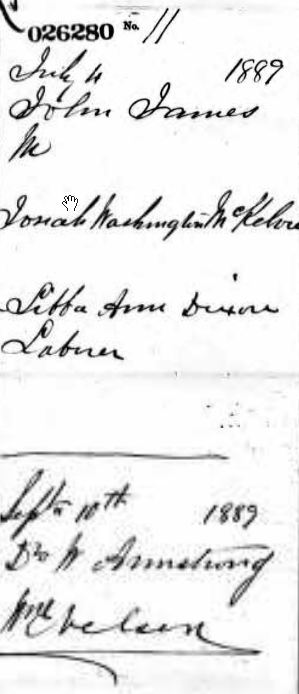 026280 No. 11
July 4 1889
John James
M
Josiah Washington McKelvie
Sibba Ann Dixon
Laborer
Septr 10th 1889
Dr W Armstrong
Wm Nelson